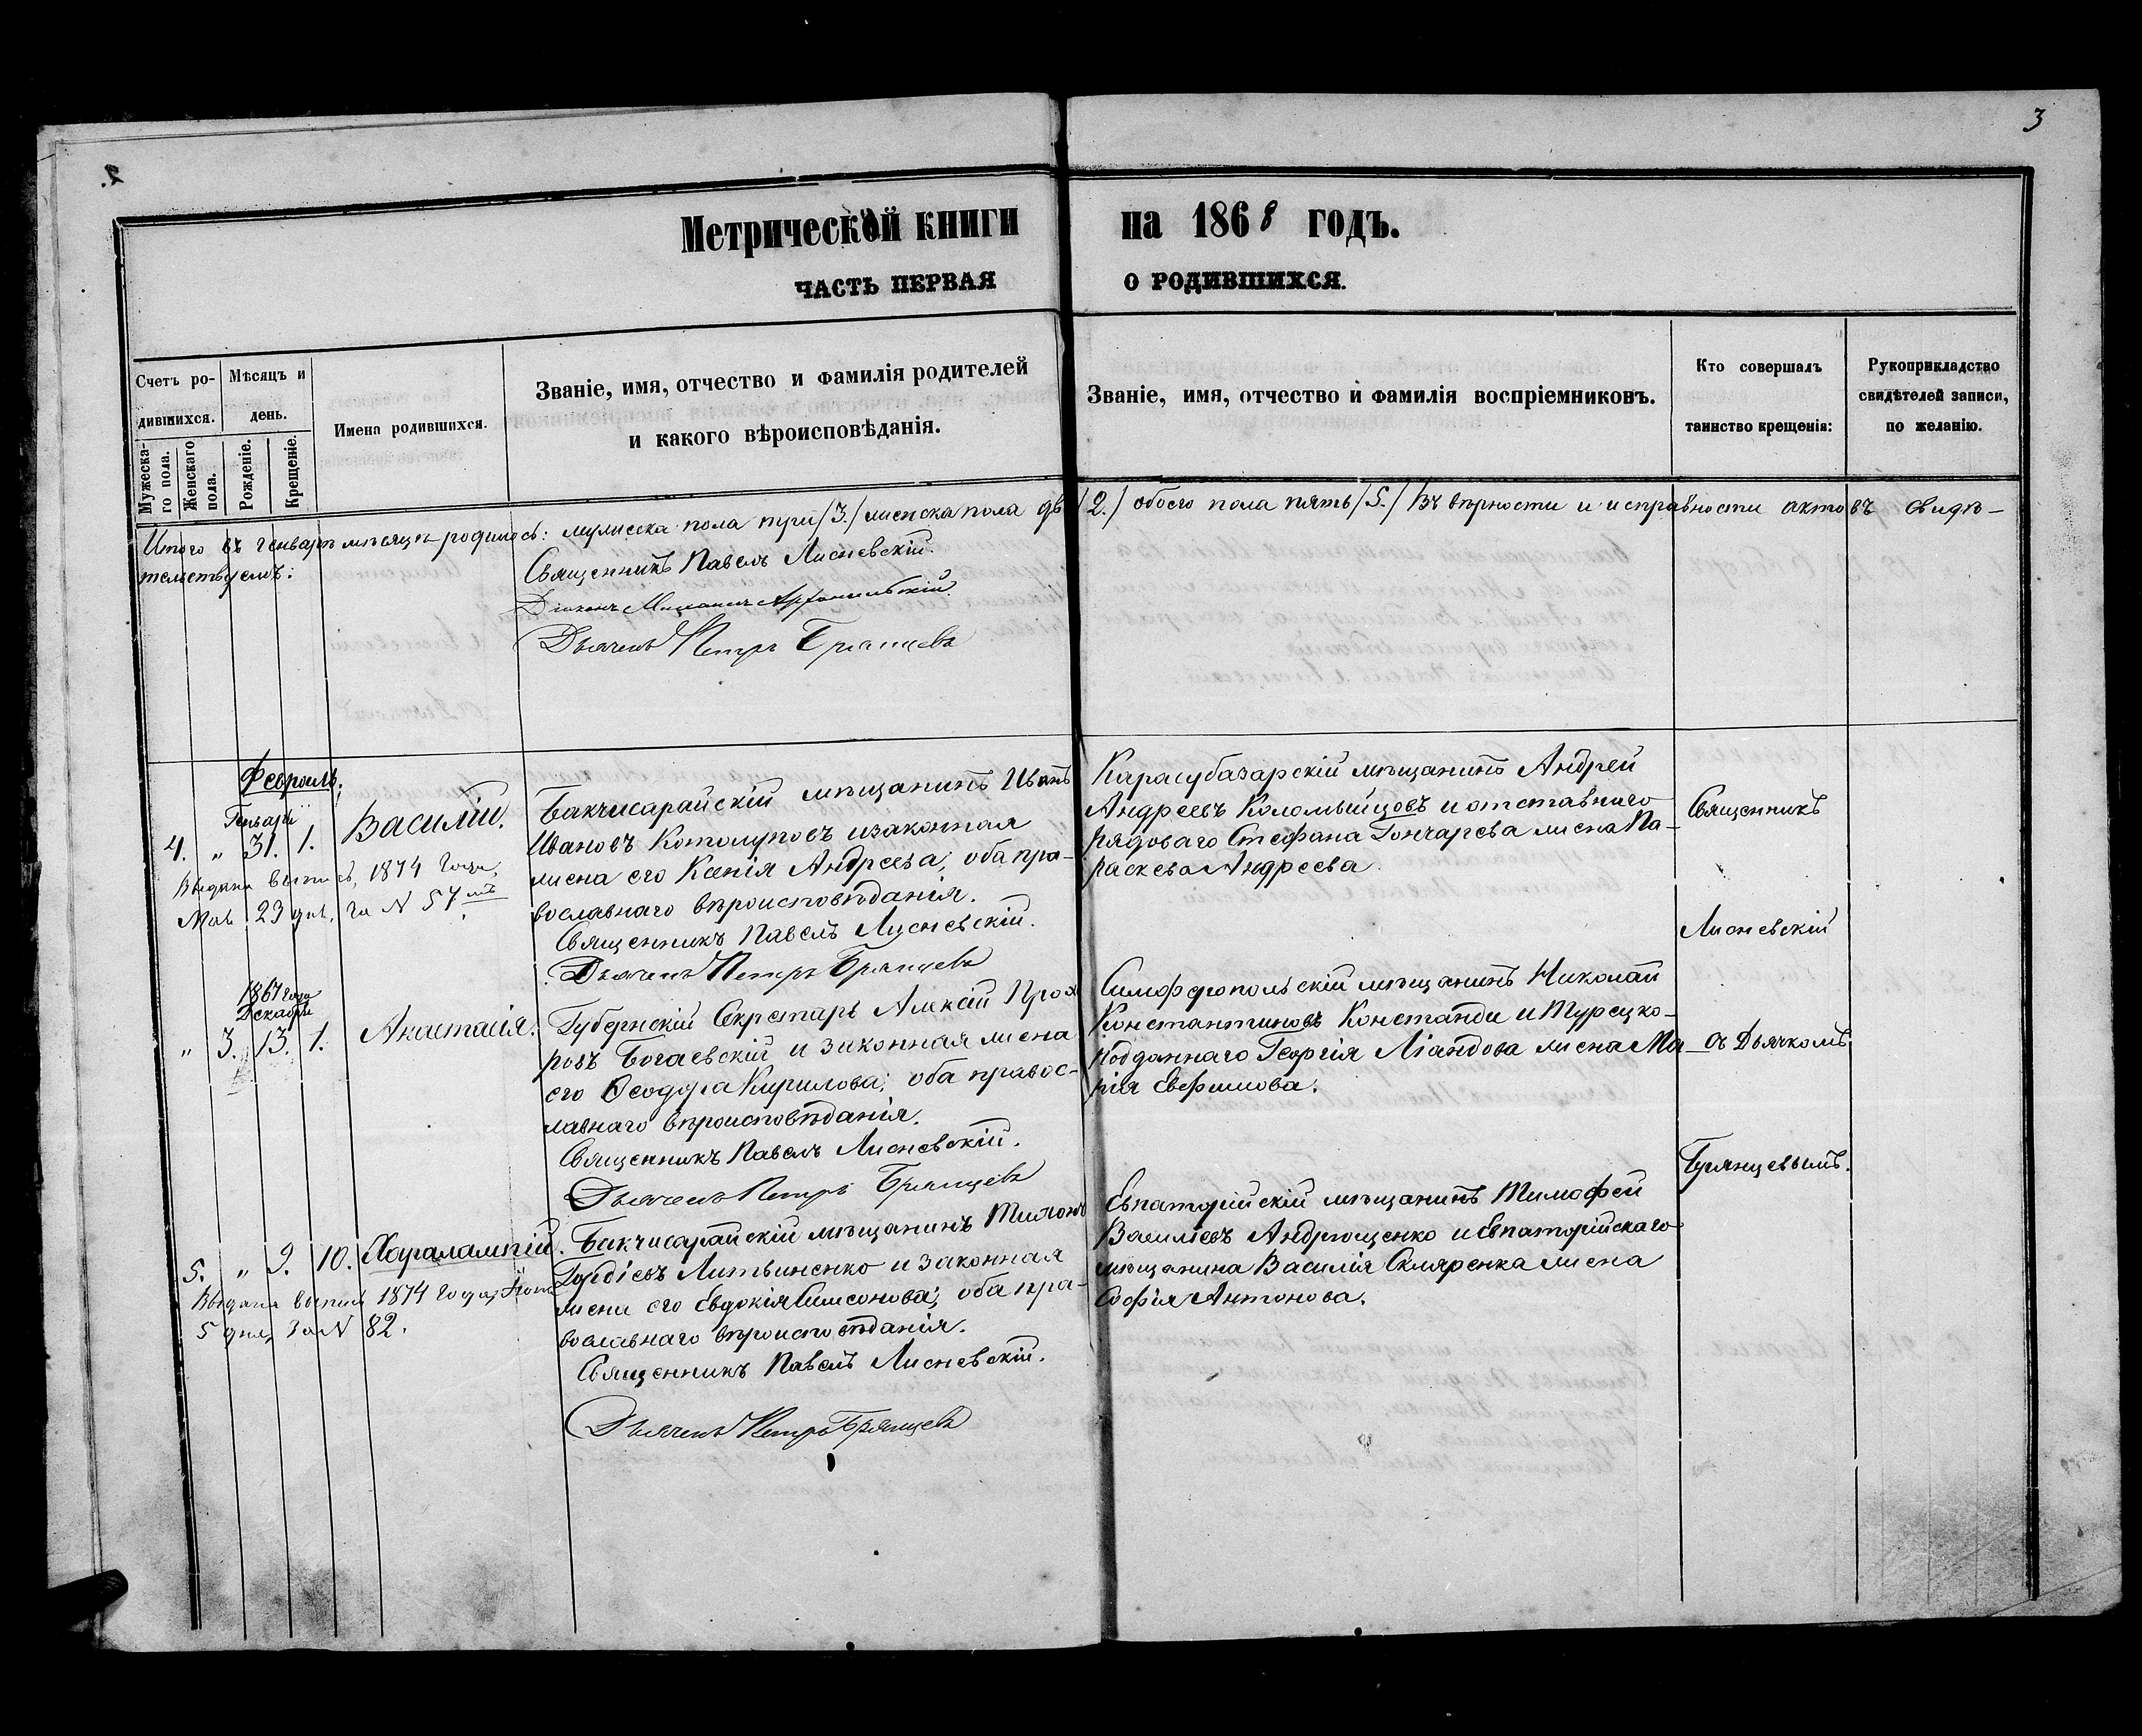 3
2.
Метрической книги на 1868 годъ.
ЧАСТЬ ПЕРВАЯ О РОДИВШИХСЯ.
Счетъ ро-
дившихся.
Мѣсяцъ и
день.
Мужеска-
го пола.
Женскаго
пола.
Рожденіе.
Крещеніе.
Имена родившихся.
Званіе, имя, отчество и фамилія родителей
и какого вѣроисповѣданія.
Званіе, имя, отчество и фамилія воспріемниковъ.
Кто совершалъ
таинство крещенія:
Рукоприкладство
свидѣтелей записи,
по желанію.
Итого въ Генварѣ мѣсяцѣ родилось: мужеска пола три /3./ женска пола двѣ /2./ обоего пола пять /5./ Въ вѣрности и исправности актовъ свидѣ-
тельствуемъ:
Священникъ Павелъ Лисневскій.
Діаконъ
Дьячекъ Петръ Брянцевъ
Февраль.
Генваря
4. " 31. 1. Василій.
Выдана выпись, 1874 года,
Мая 23 дня, за N 57мъ
Бакчисарайскій мѣщанинъ Иванъ
Ивановъ Котолуповъ и законная
жена его Ксенія Андреева; оба пра-
вославнаго вѣроисповѣданія.
Священникъ Павелъ Лисневскій.
Дьячекъ Петръ Брянцевъ
Карасубазарскій мѣщанинъ Андрей
Андреевъ Коломыйцовъ и отставнаго
рядоваго Стефана Гончарева жена Па-
раскева Андреева.
Священникъ
Лисневскій
съ Дьячкомъ
Брянцевымъ.
1867 года
Декабря
" 3. 13. 1. Анастасія.
Губернскій Секретарь Алексій Прох
ровъ Богаевскій и законная жена
его Ѳеодора Кирилова; оба правос-
лавнаго вѣроисповѣданія.
Священникъ Павелъ Лисневскій.
Дьячекъ Петръ Брянцевъ
Симферопольскій мѣщанинъ Николай
Константиновъ Констанди и Турецко-
подданнаго Георгія Ліандова жена Ма-
рія Евфимова.
5. " 9. 10. Харалампій.
Выдана выпись 1874 года,
5 дня, за N 82.
Бакчисарайскій мѣщанинъ Тихонъ
Гордіевъ Литвиненко и законная
жена его Евдокія Симеонова; оба пра-
вославнаго вѣроисповѣданія.
Священникъ Павелъ Лисневскій.
Дьячекъ Петръ Брянцевъ
Евпаторійскій мѣщанинъ Тимофей
Василіевъ Андрющенко и Евпаторійскаго
мѣщанина Василія Скляренка жена
Софія Антонова.